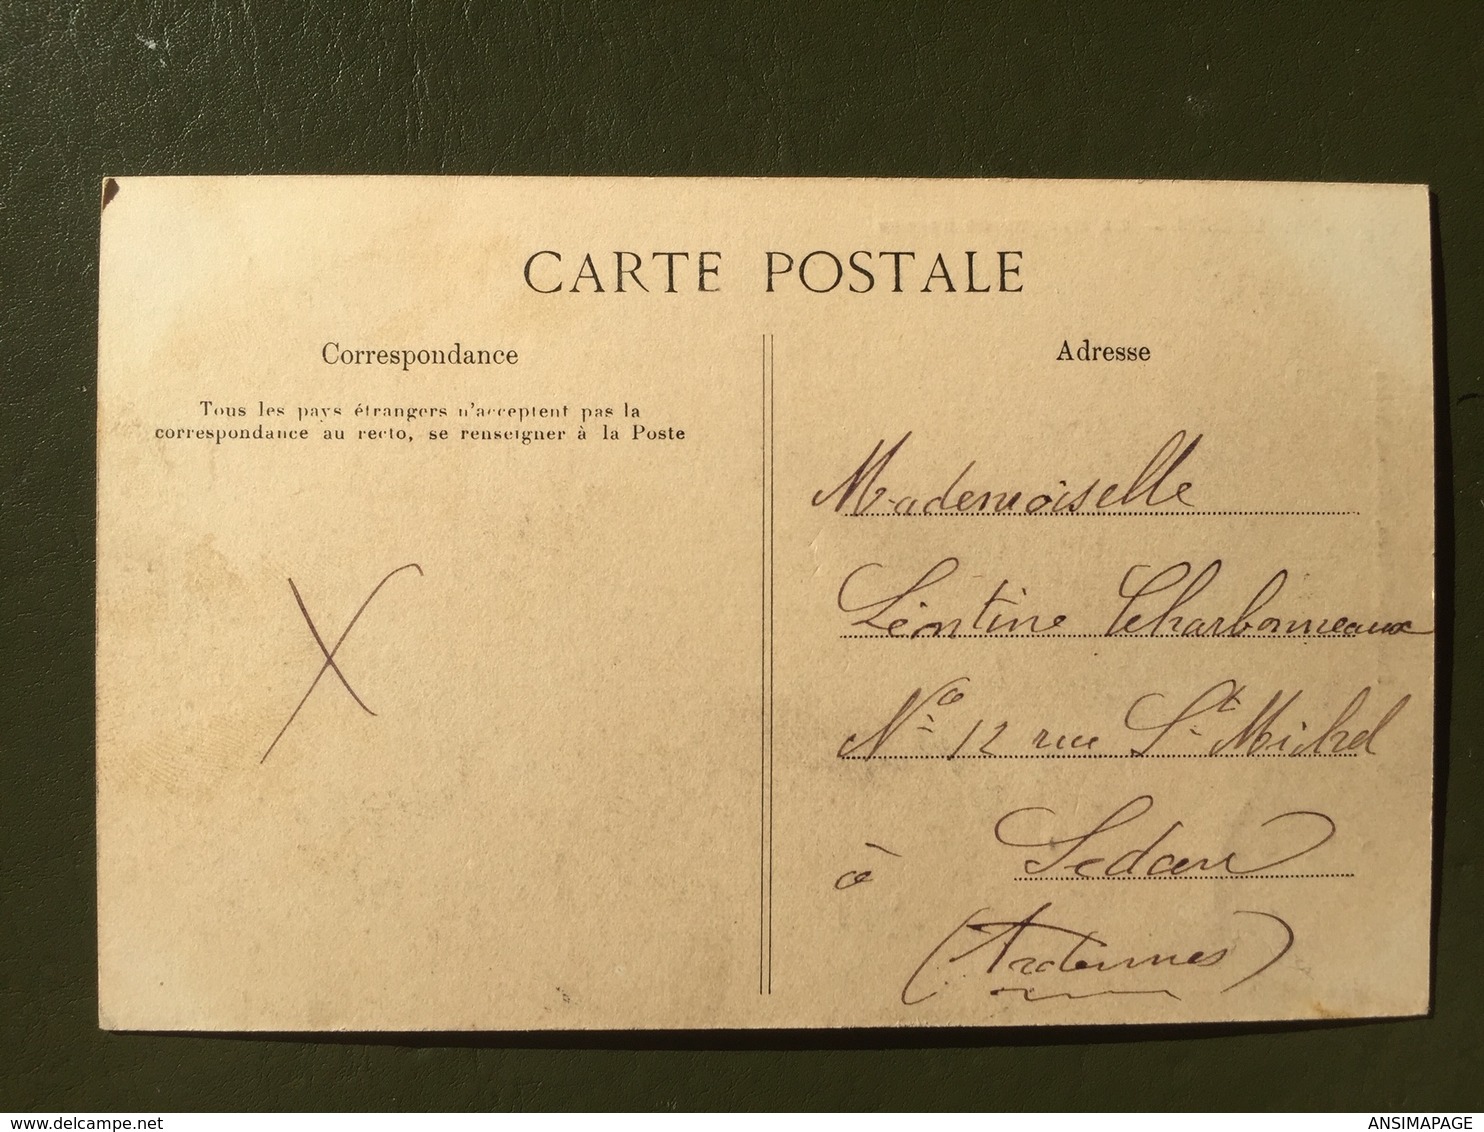 CARTE POSTALE
Correspondance
Tous les pays étrangers n'acceptent pas la
correspondance au recto, se renseigner à la Poste
X
Adresse
Mademoiselle
Léontine Charbonneaux
No 12 rue St Michel
à Sedan
(Ardennes)
www.delcampe.net
ANSIMAPAGE